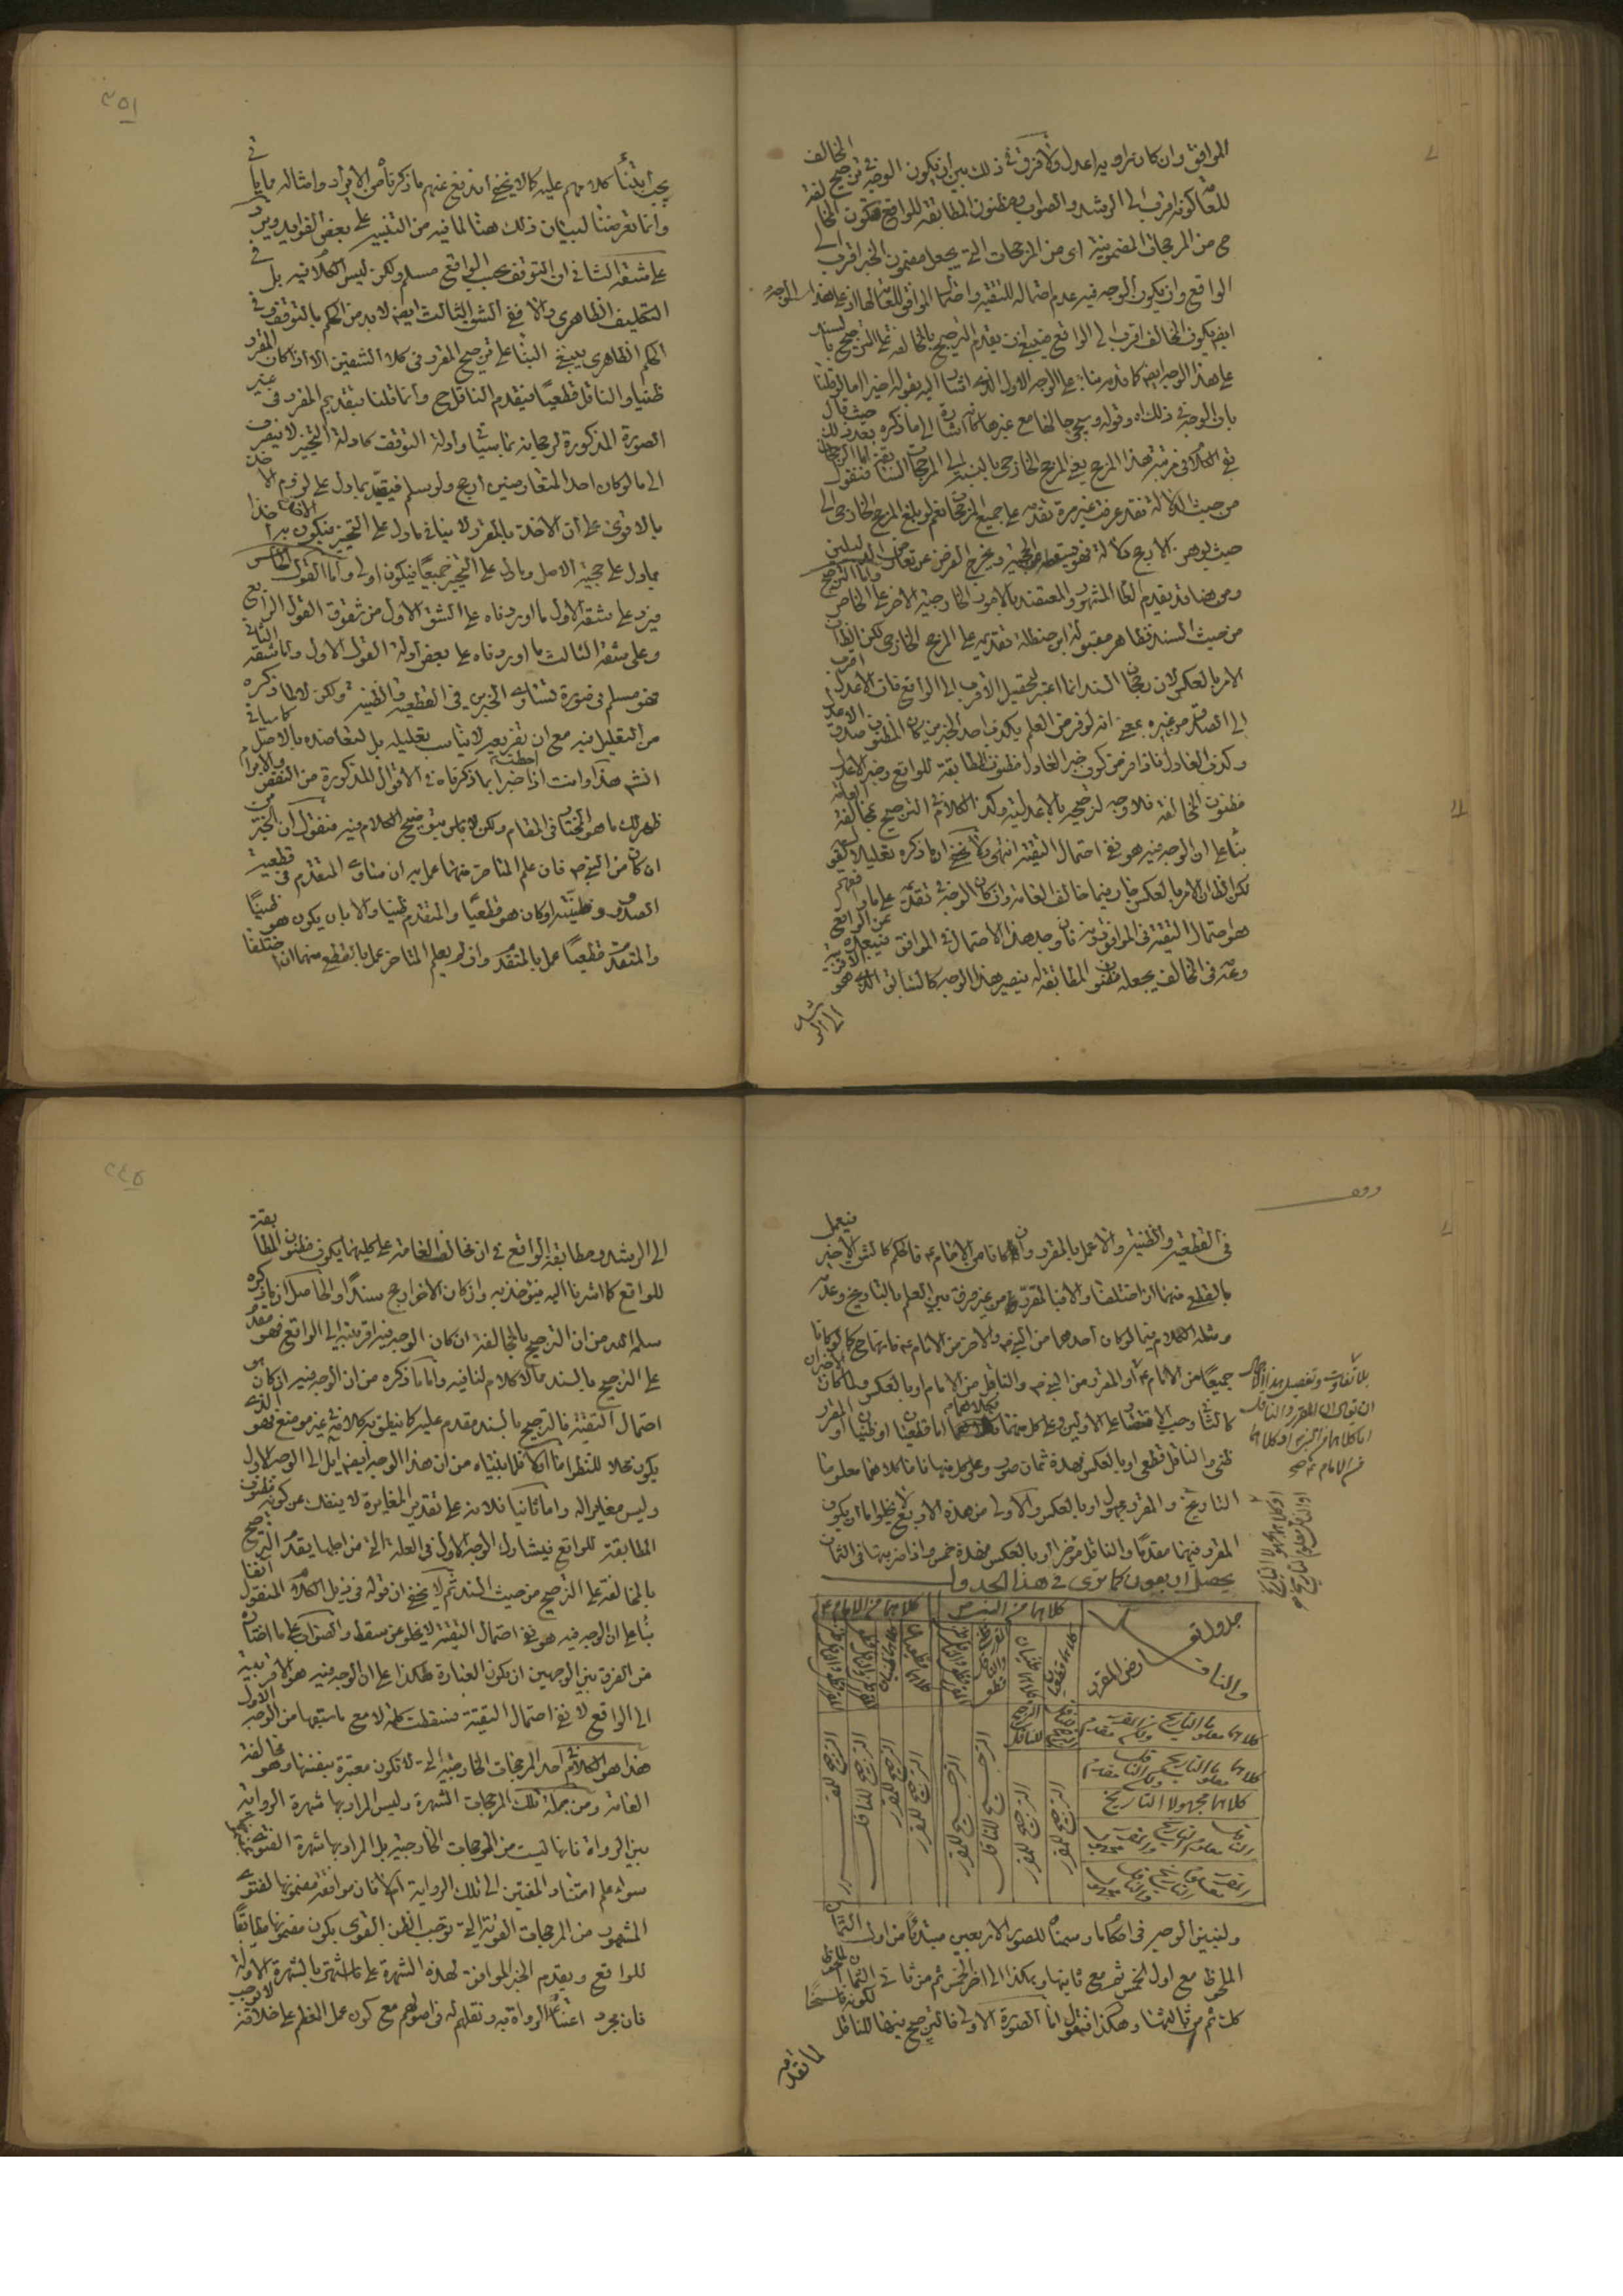 الموافق وان كان راويه اعدل ولا فرق في ذلك بين ان يكون الوجه في ترجيح المخالف
للعامة كونه اقرب الى الرشد والصواب ومظنون المطابقة للواقع فتكون المخالفة
ح من المرجحات المضمونية اى من المرجحات التى يجعل مضمون الخبر اقرب الى
الواقع وان يكون الوجه فيه عدم احتماله للتقية واحتمال الموافق للعامة لها اذ على هذا الوجه
ايضا يكون المخالف اقرب الى الواقع فينبغى ان يقدم الترجيح بالمخالفة على الترجيح بالسند
على هذا الوجه ايضا كما قدم بناء على الوجه الاول الذى اشار اليه بقوله اخيرا اما لو قلنا
بان الوجه في ذلك اه وقوله
في الكلام في مرتبة هذا المرجح يعنى المرجح الخارجى بالنسبة الى المرجحات السابقة فنقول اما الرجحان
من حيث الدلالة فقد عرفت غير مرة تقدمه على جميع المرجحات نعم لو بلغ المرجح الخارجى الى
حيث يوهن الارجح دلالة فهو يسقطه عن الحجية ويخرج الفرض عن تعارض الدليلين
ومن هنا قد يقدم العام المشهور والمعتضد بالامور الخارجية الاخر على الخاص واما الترجيح
من حيث السند فظاهر مقبولة ابن حنظلة تقديمه على المرجح الخارجى لكن الظاهر ان
الامر بالعكس لان رجحان السند انما اعتبر لتحصيل الاقرب الى الواقع فان الاعدل اقرب
الى الصدق من غيره بمعنى انه لو فرض العلم بكذب احد الخبرين كان المظنون صدق الاعدل
وكذب العادل فاذا فرض كون خبر العادل مظنون المطابقة للواقع وخبر الاعدل
مظنون المخالفة فلا وجه لترجيحه بالاعدلية وكذا الكلام في الترجيح بمخالفة العامة
بناء على ان الوجه فيه هو نفى احتمال التقية انتهى ولا يخفى ان ما ذكره تعليلا لقوله
لكن الظاهر ان الامر بالعكس جار فيما خالف العامة وان كان الوجه في تقدمه على ما وافقهم
هو احتمال التقية في الموافق دونه فان وجد هذا الاحتمال في الموافق فيبعده عن الواقع
وعدمه في المخالف يجعله مظنون المطابقة له فيصير هذا الوجه كالسابق الذى هو الاقربية
الى الرشد
٢٥١
يجب ابتناء كلامهم عليه كما لا يخفى اندفع عنهم ما ذكرناه من الايراد وامثاله مما ياتى
وانما تعرضنا لبيان ذلك هنا لما فيه من التنبيه على بعض الفوايد ويرد
على شقه الثانى ان التوقف بحسب الواقع مسلم ولكن ليس الكلام فيه بل في
التكليف الظاهرى والا ففى الشق الثالث ايضا لابد من الحكم بالتوقف وفى
الحكم الظاهرى ينبغى البناء على ترجيح المقرر فى كلا الشقين الا اذا كان المقرر
ظنيا والناقل قطعيا فيقدم الناقل ح وانما قلنا بتقديم المقرر فى غير
الصورة المذكورة لرجحانه بما سياتى وادلة التوقف كادلة التخيير لا ينصرف
الى ما لو كان احد المتعارضين ارجح ولو سلم فيقيد بما دل على لزوم الاخذ
بالاقوى على ان الاخذ بالمقرر لا ينافى ما دل على التخيير فيكون
بما دل على حجية الاصل وما دل على التخيير جميعا فيكون اولى واما القول الخامس
فيرد على شقه الاول ما اوردناه على الشق الاول من شقوق القول الرابع
وعلى شقه الثالث ما اوردناه على بعض ادلة القول الاول واما شقه الثانى
فهو مسلم فى صورة تساوى الخبرين فى القطعية والظنية ولكن لا لما ذكره
من التعليل فيه مع ان تفريعه لا يناسب تعليله بل لتعاضده بالاصل كما سياتى
انش هذا وانت اذا احطت خبرا بما ذكرناه فى الاقوال المذكورة من النقض والابرام
ظهر لك ما هو المختار فى المقام ولكن لا باس بتوضيح الكلام فيه فنقول ان الخبرين
ان كانا من النبى ص فان علم المتاخر منهما عمل به ان ساوى المتقدم فى قطعية
الصدور وظنيته او كان هو قطعيا والمتقدم ظنيا والا بان يكون هو ظنيا
والمتقدم قطعيا عمل بالمتقدم وان لم يعلم المتاخر عمل بالقطع منهما ان اختلفا
فى القطعية والظنية والا عمل بالمقرر وان كانا من الامام ع فالحكم كالشق الاخير فيعمل
بالقطع منهما ان اختلفا والا فبالمقرر من غير فرق بين العلم بالتاريخ وعدمه
ومثله الكلام فيما لو كان احدهما من النبى ص والاخر من الامام ع فانهما ح كما لو كانا
جميعا من الامام ع او المقرر من النبى ص والناقل من الامام او بالعكس ولما كان الاخيران
كالثانى وجب الاقتصار على الاولين وعلى كل منهما فكلاهما اما قطعيان او ظنيان او المقرر
ظنى والناقل قطعى او بالعكس فهذه ثمان صور وعلى كل منها فاما كلاهما معلوما
التاريخ والمقرر مجهول او بالعكس والاولى من هذه الاربع لا يخلو اما ان يكون
المقرر فيها مقدما والناقل مؤخرا او بالعكس فهذه خمس واذا ضربتها فى الثمان
يحصل اربعون كما ترى فى هذا الجدول
بلا تفاوت وتفصيل هذا الاجمال
ان يقال ان المقرر والناقل
اما كلاهما من النبى ص او كلاهما
من الامام ع صح
او كلاهما مجهولا التاريخ
او الناقل معلوم التاريخ
جدول تعارض المقرر والناقل
كلاهما من النبى ص
كلاهما من الامام ع
كلاهما قطعيان
كلاهما ظنيان
كلاهما معلوما التاريخ ولكن المقرر مقدم
كلاهما معلوما التاريخ ولكن الناقل مقدم
كلاهما مجهولا التاريخ
الناقل معلوم التاريخ والمقرر مجهول
المقرر معلوم التاريخ والناقل مجهول
الترجيح للناقل
الترجيح للمقرر
الترجيح للمقرر
الترجيح للناقل
الترجيح للمقرر
الترجيح للمقرر
الترجيح للمقرر
الترجيح للناقل
الترجيح للمقرر
ولنبين الوجه فى احكام ما رسمناه للصور الاربعين مبتدئا من اولى الثمان
الملحوظ مع اول الخمس ثم مع ثانيها وهكذا الى اخر الخمس ثم من ثانى الثمان الملحوظ
كك ثم من ثالثها وهكذا فنقول اما الصورة الاولى فالترجيح فيها للناقل لكونه ناسخا
لما تقدمه
٢٤٥
الى الرشد ومطابقة الواقع فى ان مخالف العامة على كليهما يكون مظنون المطابقة
للواقع كما اشرنا اليه فيؤخذ به وان كان الاخر ارجح سندا والحاصل ان ما ذكره
سلمه الله من ان الترجيح بالمخالفة ان كان الوجه فيه اقربيته الى الواقع فهو مقدم
على الترجيح بالسند مما لا كلام لنا فيه واما ما ذكره من ان الوجه فيه ان كان هو
احتمال التقية فالترجيح بالسند مقدم عليه كما ينطق به كلامه فى غير موضع فهو الذى
يكون محلا للنظر اما اولا فلما بيناه من ان هذا الوجه ايضا يئل الى الوجه الاول
وليس مغايرا له واما ثانيا فلانه على تقدير المغايرة لا ينفك عن كونه مظنون
المطابقة للواقع فيشارك الوجه الاول فى العلة التى من اجلها يقدم الترجيح
بالمخالفة على الترجيح من حيث السند ثم لا يخفى ان قوله فى ذيل الكلام المنقول انفا
بناء على ان الوجه فيه هو نفى احتمال التقية لا يخلو عن سقط والصواب على ما اختاره
من الفرق بين الوجهين ان يكون العبارة هكذا على ان الوجه فيه هو الاقربية
الى الواقع لا نفى احتمال التقية فسقطت كلمة لا مع ما سبقها من الوجه الاول
هذا هو الكلام فى احد المرجحات الخارجية التى لا تكون معتبرة بنفسها وهو مخالفة
العامة ومن جملة تلك المرجحات الشهرة وليس المراد بها شهرة الرواية
بين الرواة فانها ليست من المرجحات الخارجية بل المراد بها شهرة الفتوى
سواء علم استناد المفتين الى تلك الرواية ام لا فان موافقة مضمونها لفتوى
المشهور من المرجحات القوية التى توجب الظن القوى بكون مضمونها مطابقا
للواقع ويقدم الخبر الموافق لهذه الشهرة على ما اشتهر بالشهرة الاولة
فان مجرد اعتناء الرواة به ونقلهم له فى اصولهم مع كون عمل المعظم على خلافه لا يوجب